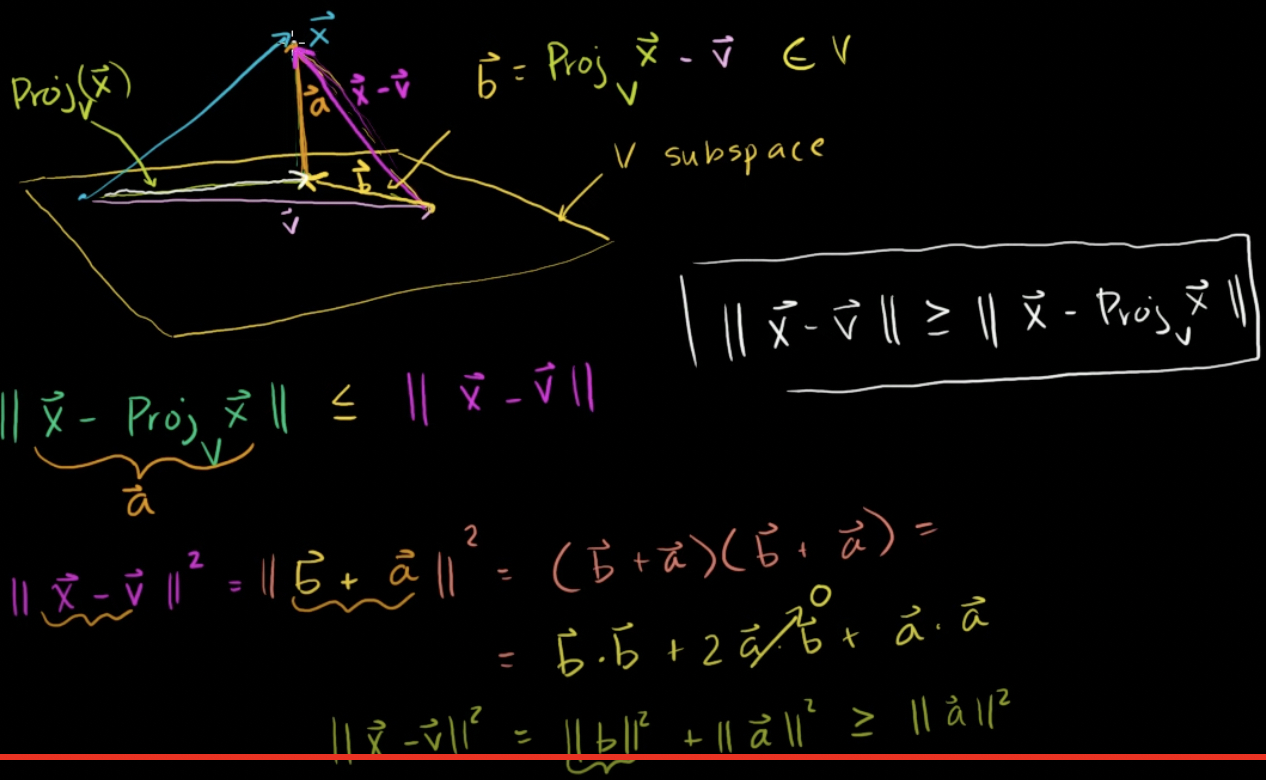 x⃗
Proj_V(x⃗)
a⃗
x⃗ - v⃗
b⃗ = Proj_V x⃗ - v⃗ ∈ V
V subspace
b⃗
v⃗
|| x⃗ - v⃗ || ≥ || x⃗ - Proj_V x⃗ ||
|| x⃗ - Proj_V x⃗ || ≤ || x⃗ - v⃗ ||
a⃗
|| x⃗ - v⃗ ||² = || b⃗ + a⃗ ||² = (b⃗ + a⃗)(b⃗ + a⃗) =
0
= b⃗ · b⃗ + 2 a⃗ · b⃗ + a⃗ · a⃗
|| x⃗ - v⃗ ||² = || b ||² + || a⃗ ||² ≥ || a⃗ ||²